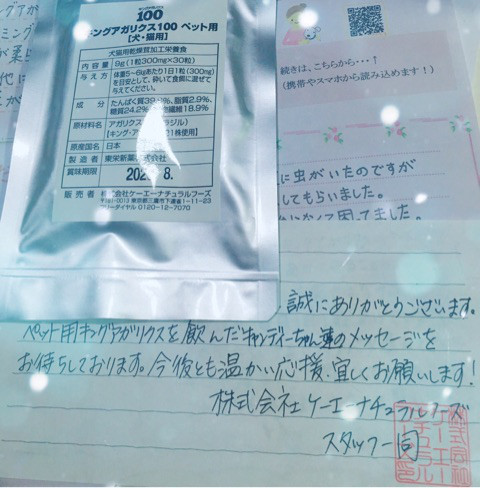 100
キングアガリクス100 ペット用
【犬・猫用】
犬猫用乾燥茸加工栄養食
内容量 9g(1粒300mg×30粒)
与え方 体重5~6gあたり1日1粒(300mg)
を目安として、砕いて食餌に混ぜて
与えてください。
成分 たんぱく質39. %、脂質2.9%、
糖質24.2% 繊維18.9%
原材料名 アガリクス ジル)
【キング・アガ 21株使用】
原産国名 日本
製造者 東栄新薬株式会社
賞味期限 202 8.
販売者 株式会社ケーエーナチュラルフーズ
〒181-0013 東京都三鷹市下連雀1-11-23
フリーダイヤル 0120-12-7070
続きは、こちらから・・・↑
(携帯やスマホから読み込めます!)
に虫がいたのですが
してもらいました。
困ってました。
誠にありがとうございます。
ペット用キングアガリクスを飲んだキャンディーちゃん達のメッセージを
お待ちしております。今後とも温かい応援、宜しくお願いします!
株式会社ケーエーナチュラルフーズ
スタッフ一同